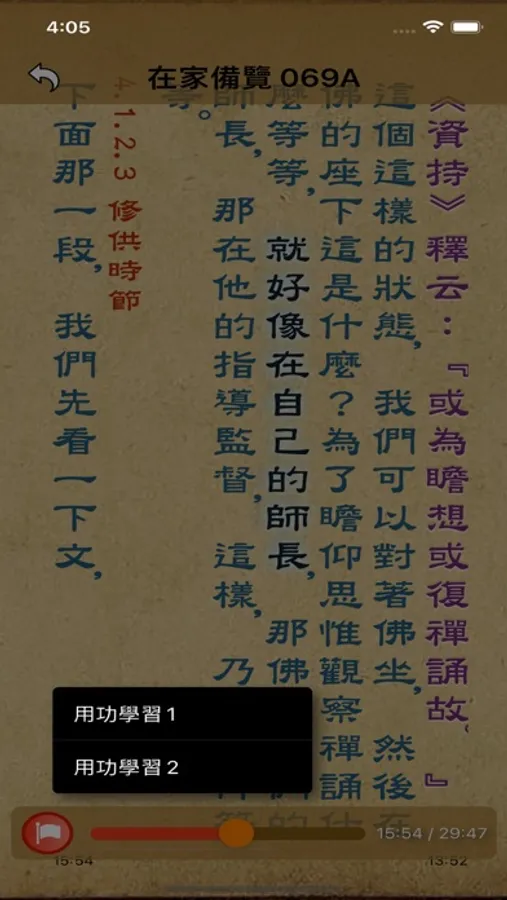 4:05
在家備覽 069A
《資持》釋云：『或為瞻想或復禪誦故。』
這個這樣的狀態，我們可以對著佛坐，然後在
佛的座下這是什麼？為了瞻仰思惟觀察禪誦什
麼等等，就好像在自己的師長，那佛 們的
師長，那在他的指導監督，這樣，乃 等
等。
4.1.2.3 修供時節
下面那一段，我們先看一下文，
用功學習 1
用功學習 2
15:54 / 29:47
15:54
13:52